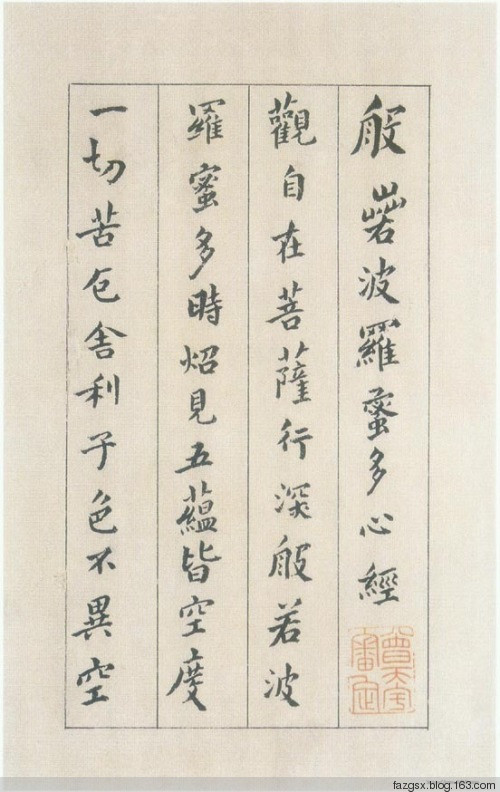 般若波羅蜜多心經
觀自在菩薩行深般若波
羅蜜多時炤見五蘊皆空度
一切苦厄舍利子色不異空
fazgsx.blog.163.com